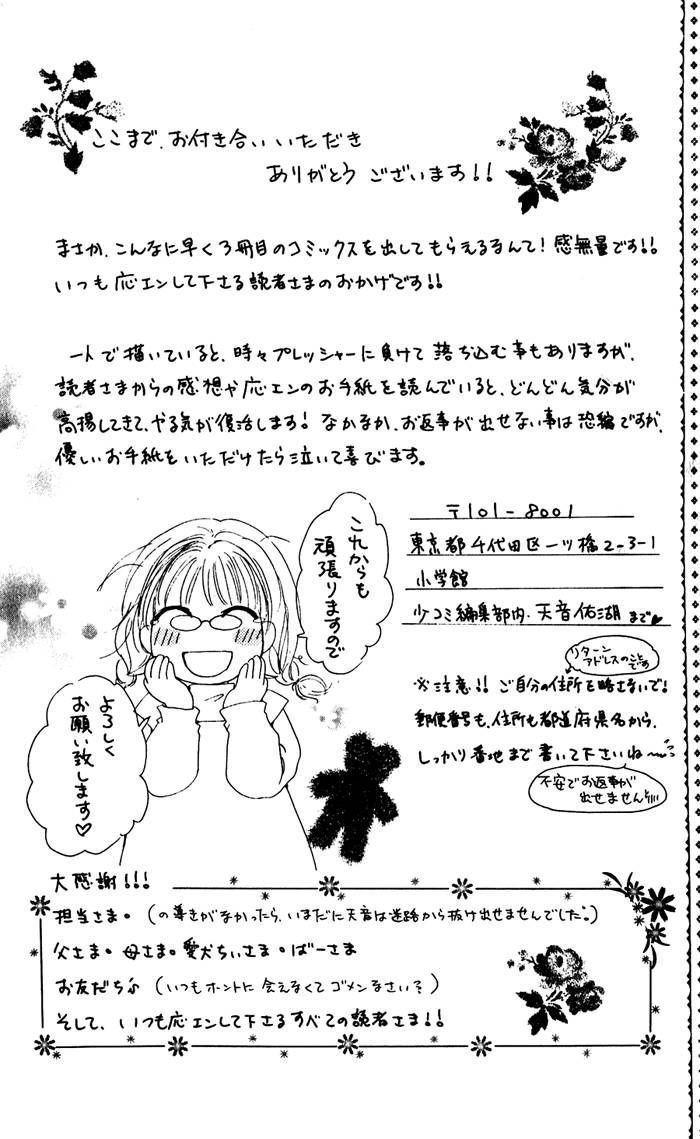 ここまで、お付き合いいただき
ありがとうございます!!
まさか、こんなに早く3冊目のコミックスを出してもらえるなんて!感無量です!!
いつも応エンして下さる読者さまのおかげです!!
一人で描いていると、時々プレッシャーに負けて落ち込む事もありますが、
読者さまからの感想や応エンのお手紙を読んでいると、どんどん気分が
高揚してきて、やる気が復活します!なかなか、お返事が出せない事は恐縮ですが、
優しいお手紙をいただけたら泣いて喜びます。
これからも
頑張りますので
よろしく
お願い致します♡
〒101-8001
東京都千代田区一ツ橋2-3-1
小学館
少コミ編集部内・天音佑湖まで♥
リターン
アドレスのこと
です
※注意!!ご自分の住所を略さないで!
郵便番号も、住所も都道府県名から、
しっかり番地まで書いて下さいね〜!!
不安でお返事が
出せません!!!!
大感謝!!!
担当さま。(の導きがなかったら、いまだに天音は迷路から抜け出せませんでした。)
父さま。母さま。愛犬ちぃさま。ばーさま
お友だち♪(いつもホントに会えなくてゴメンなさい?)
そして、いつも応エンして下さるすべての読者さま!!